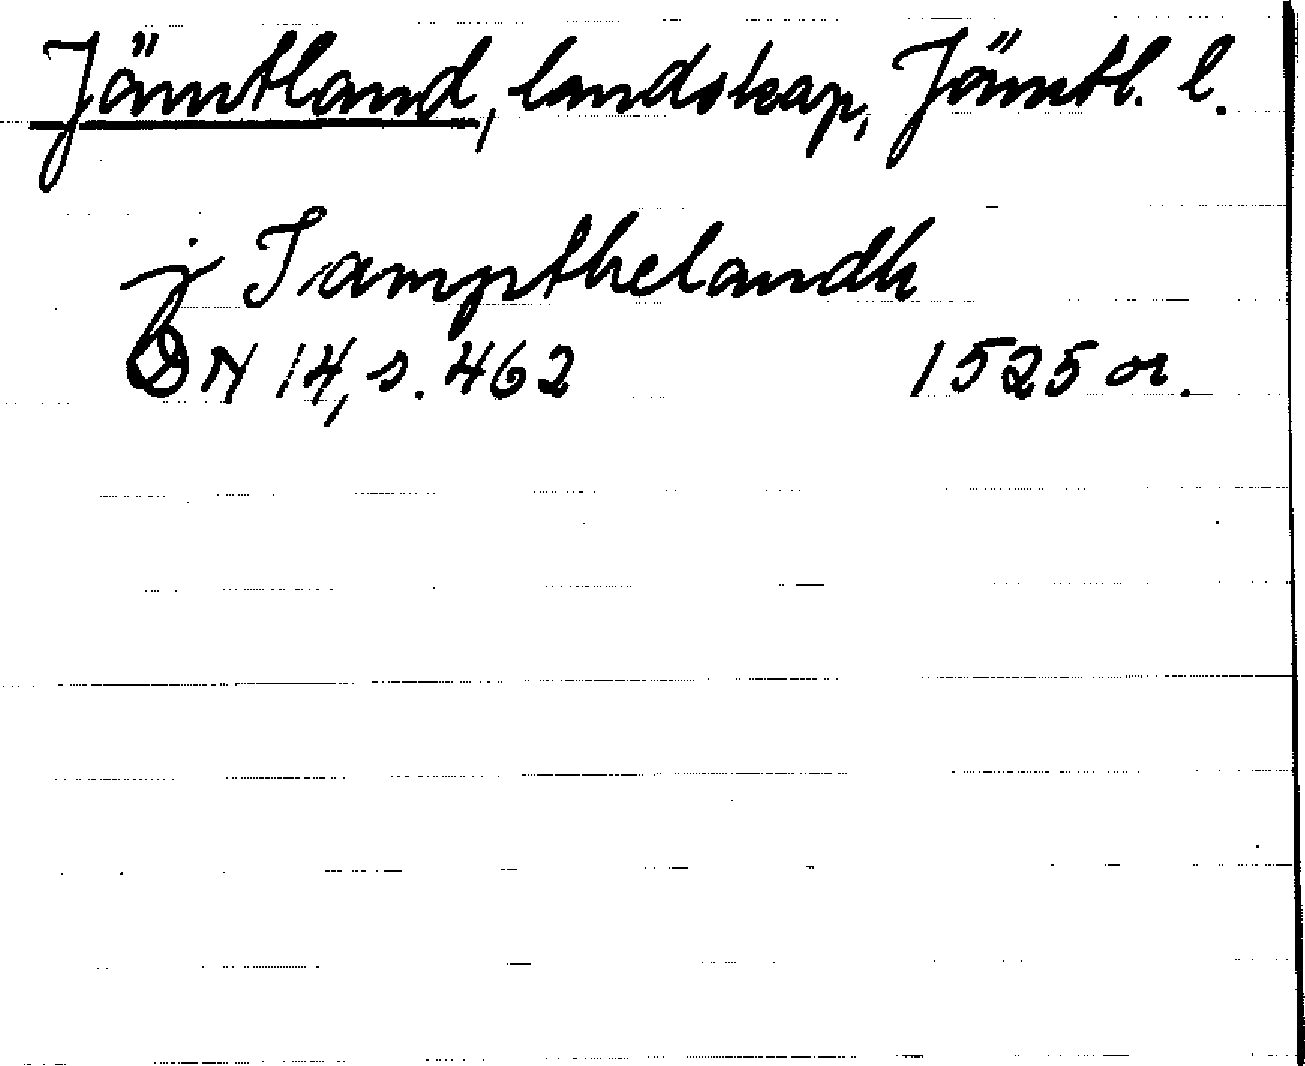 Jämtland, landskap, Jämtl. l.
j Iampthelandh
DN 14, s. 462 1525 or.